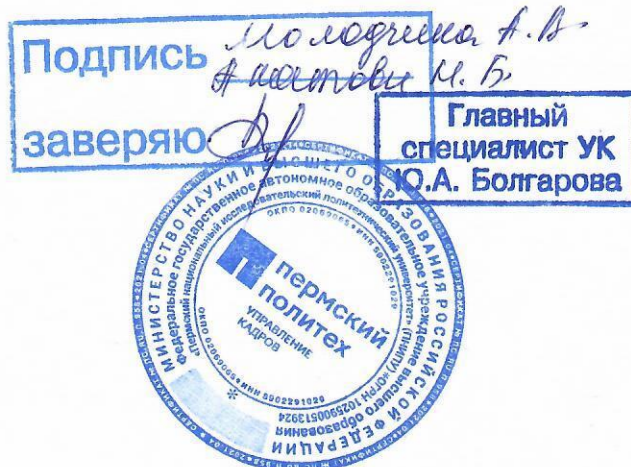 Подпись
Молодчика А.В.
заверяю
Главный
специалист УК
Ю.А. Болгарова
МИНИСТЕРСТВО НАУКИ И ВЫСШЕГО ОБРАЗОВАНИЯ РОССИЙСКОЙ ФЕДЕРАЦИИ
Федеральное государственное автономное образовательное учреждение высшего образования
«Пермский национальный исследовательский политехнический университет» (ПНИПУ) * ОГРН 1025900513924
ОКПО 02069065 * ИНН 5902291029
пермский
политех
УПРАВЛЕНИЕ
КАДРОВ
ОКПО 02069065 * ИНН 5902291029